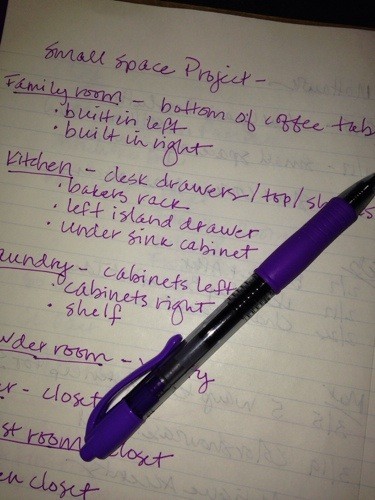 Small Space Project -
Family room - bottom of coffee tab
• built in left
• built in right
Kitchen - desk drawers/top/
• bakers rack
• left island drawer
• under sink cabinet
aundry - cabinets left
• cabinets right
• shelf
wder room -
- closet
st room closet
en closet